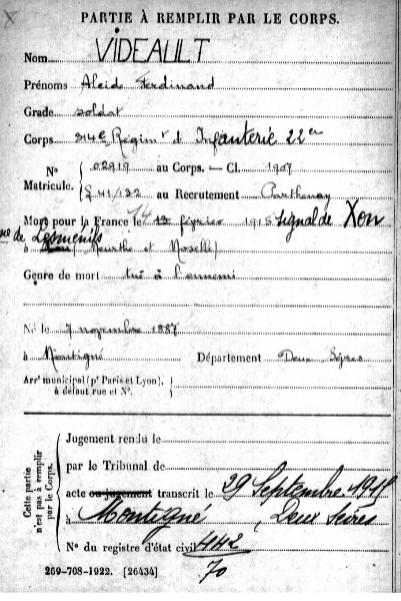 PARTIE À REMPLIR PAR LE CORPS.
Nom VIDEAULT
Prénoms Alcid Ferdinand
Grade soldat
Corps 314e Régimt d Infanterie 22e
N° 02919 au Corps. — Cl. 1907
Matricule. 41/132 au Recrutement Parthenay
Mort pour la France le 14 février 1915 Signal de Xon
de Lesménils
à (Meurthe et Moselle)
Genre de mort tué à l'ennemi
Né le 7 novembre 1887
à Montigné Département Deux Sèvres
Arrt municipal (pr Paris et Lyon),
à défaut rue et N°.
Cette partie
n'est pas à remplir
par le Corps.
Jugement rendu le
par le Tribunal de
acte ou jugement transcrit le 29 Septembre
à Montigné, Deux Sèvres
N° du registre d'état civil 442
70
269-708-1922. [26434]